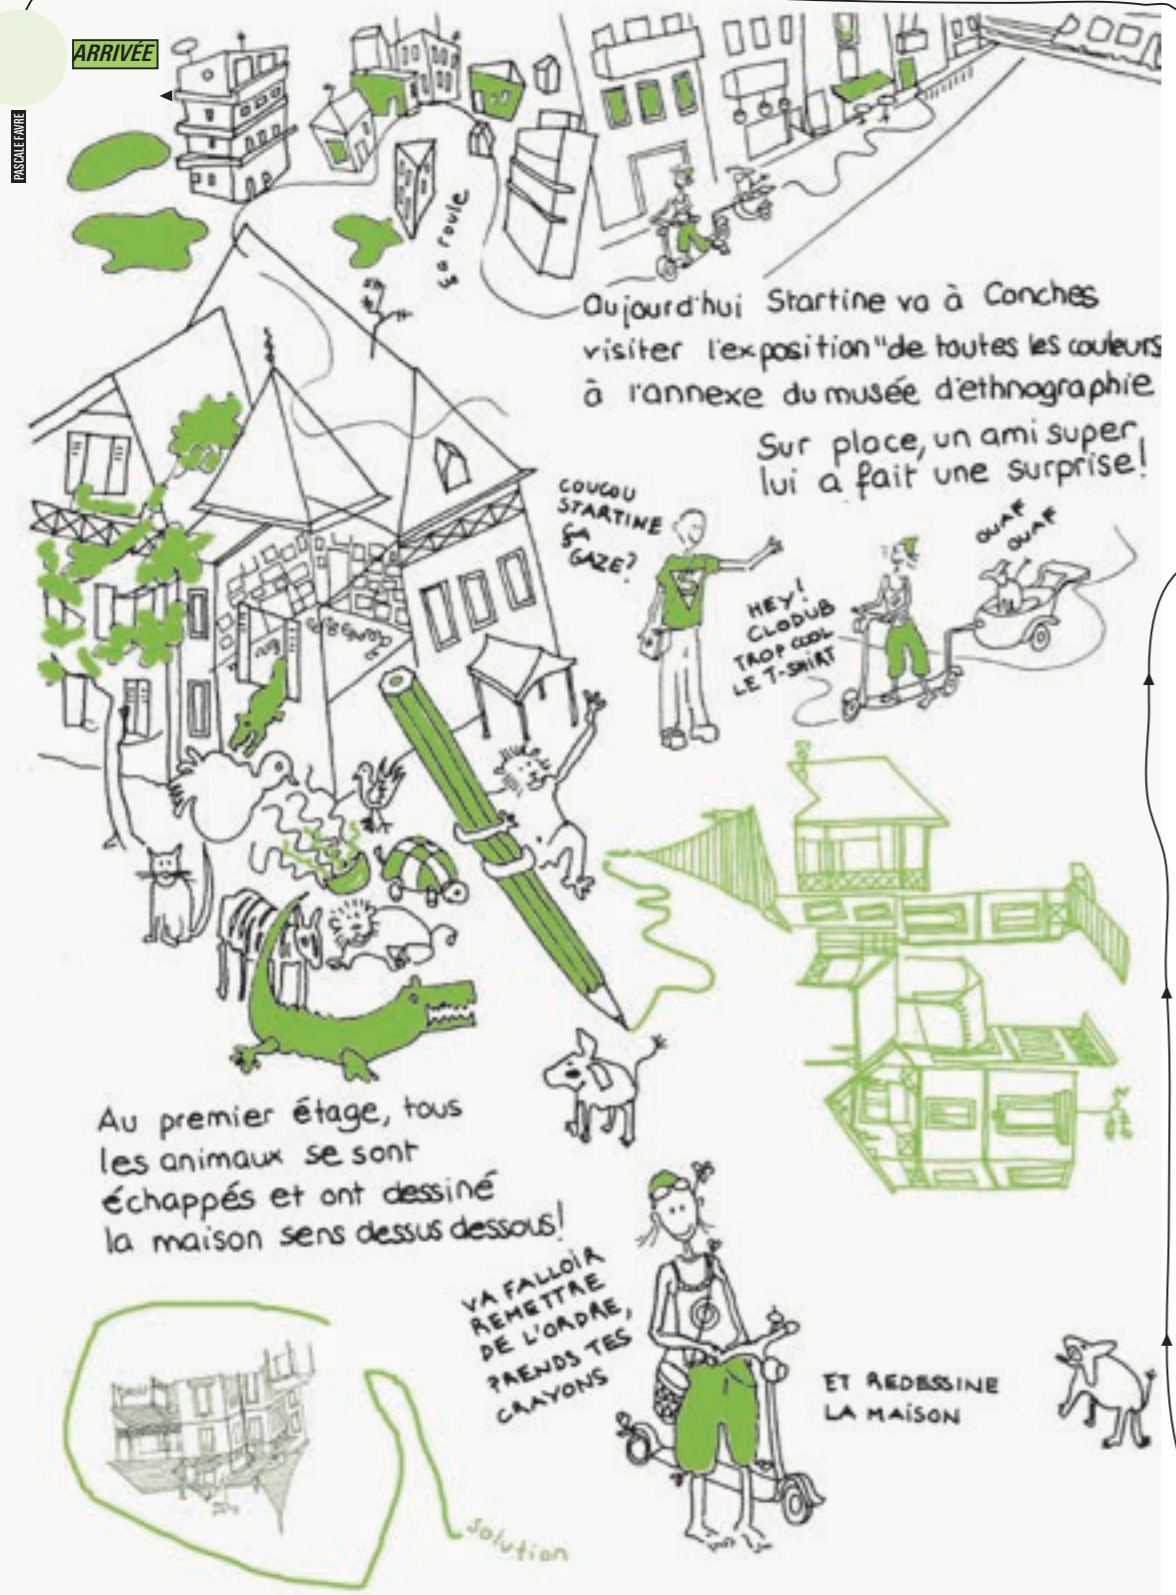 ARRIVÉE
PASCALE FAVRE
ça roule
Aujourd'hui Startine va à Conches
visiter l'exposition "de toutes les couleurs
à l'annexe du musée d'ethnographie
Sur place, un ami super
lui a fait une surprise!
COUCOU
STARTINE
ÇA
GAZE?
HEY!
CLODUB
TROP COOL
LE T-SHIRT
OUAF
OUAF
Au premier étage, tous
les animaux se sont
échappés et ont dessiné
la maison sens dessus dessous!
VA FALLOIR
REMETTRE
DE L'ORDRE,
PRENDS TES
CRAYONS
ET REDESSINE
LA MAISON
solution